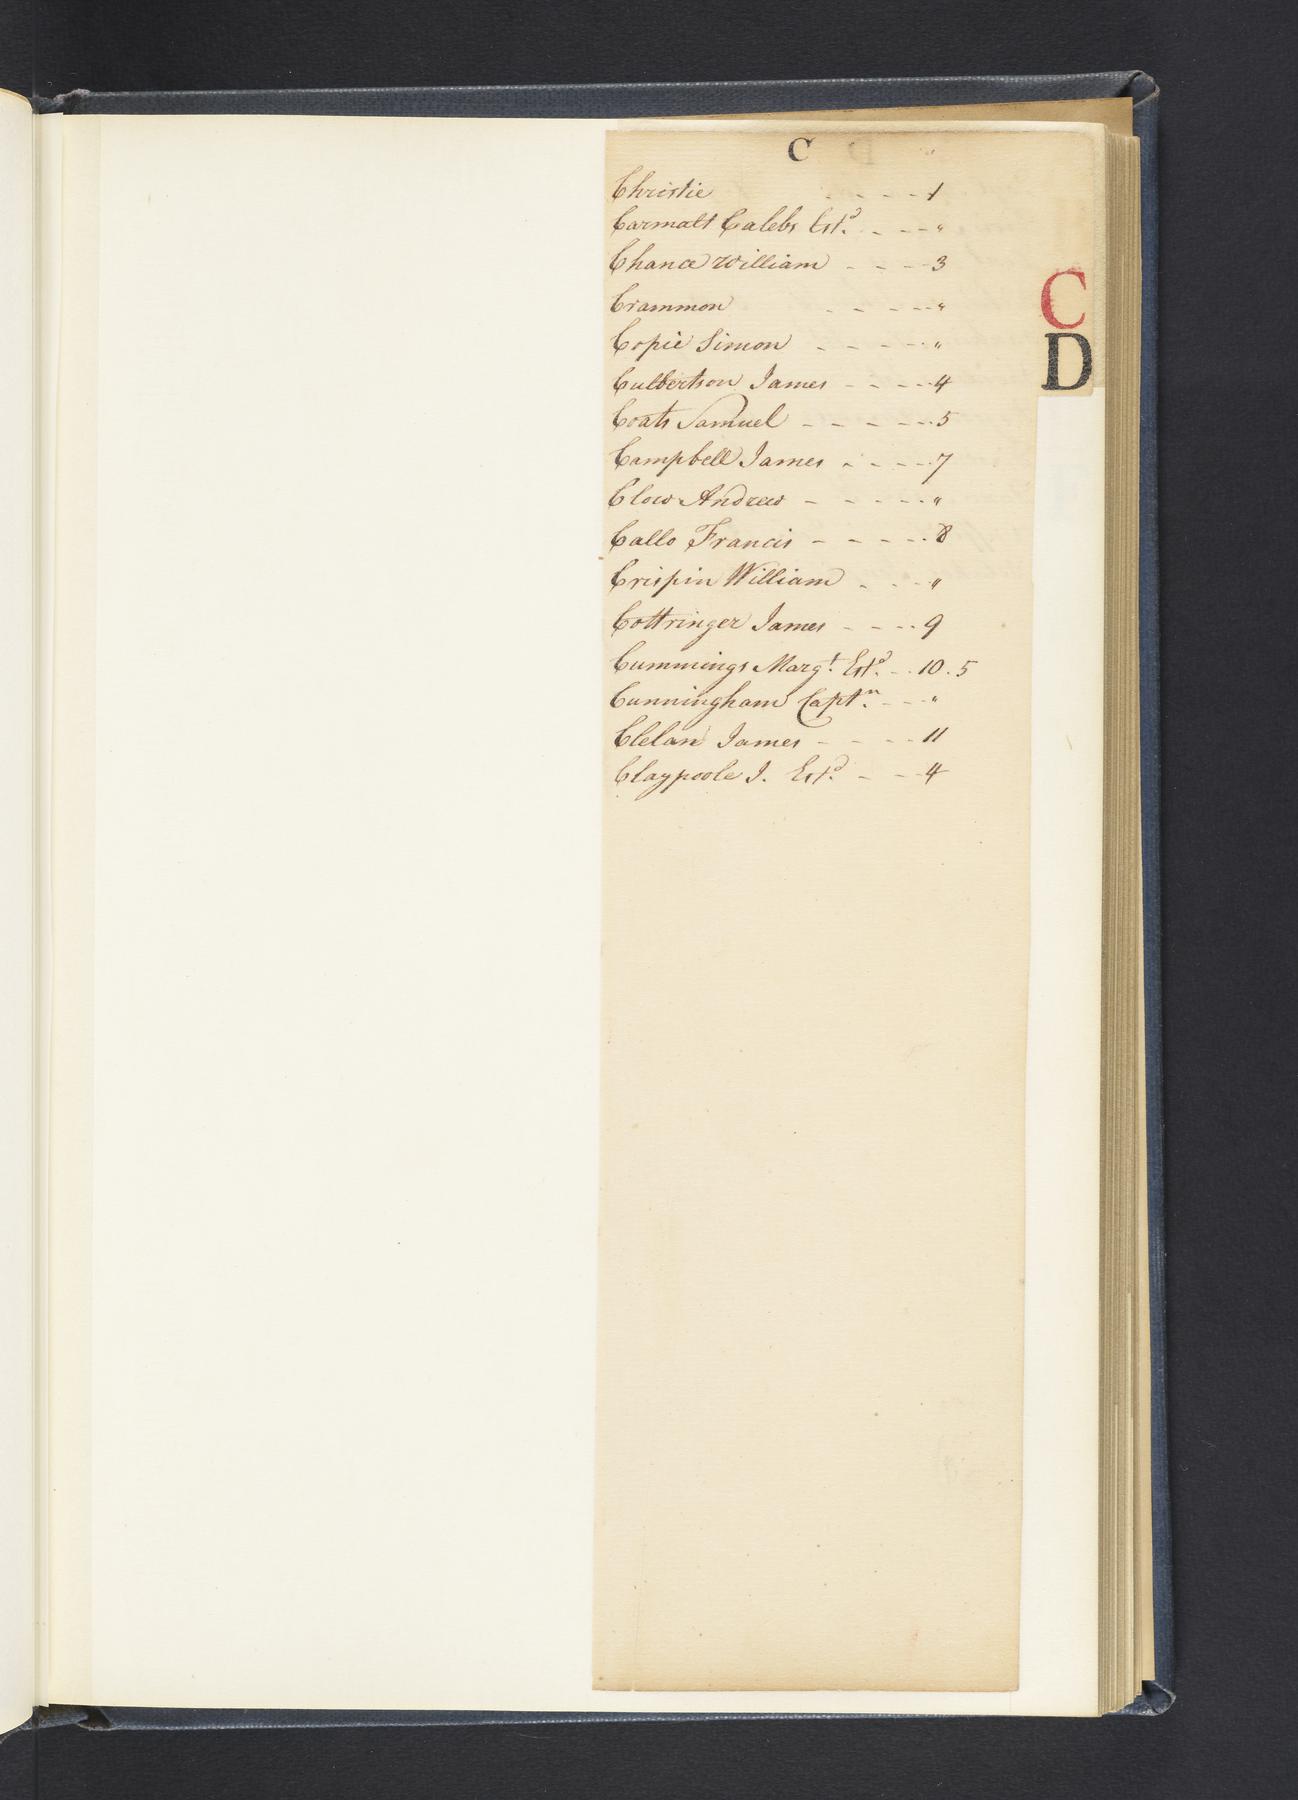 C
Christie - - - - 1
Carmalt Calebs Estd. - - - "
Chance William - - - - 3
Crammon - - - - - "
Copie Simon - - - - - "
Culbertson James - - - - 4
Coats Samuel - - - - - 5
Campbell James - - - - 7
Clow Andrew - - - - - "
Callo Francis - - - - - 8
Crispin William - - - "
Cottringer James - - - - 9
Cummings Margt. Estd. - - 10.5
Cunningham Captn. - - - "
Clelan James - - - - 11
Claypoole J. Estd. - - - 4
C
D